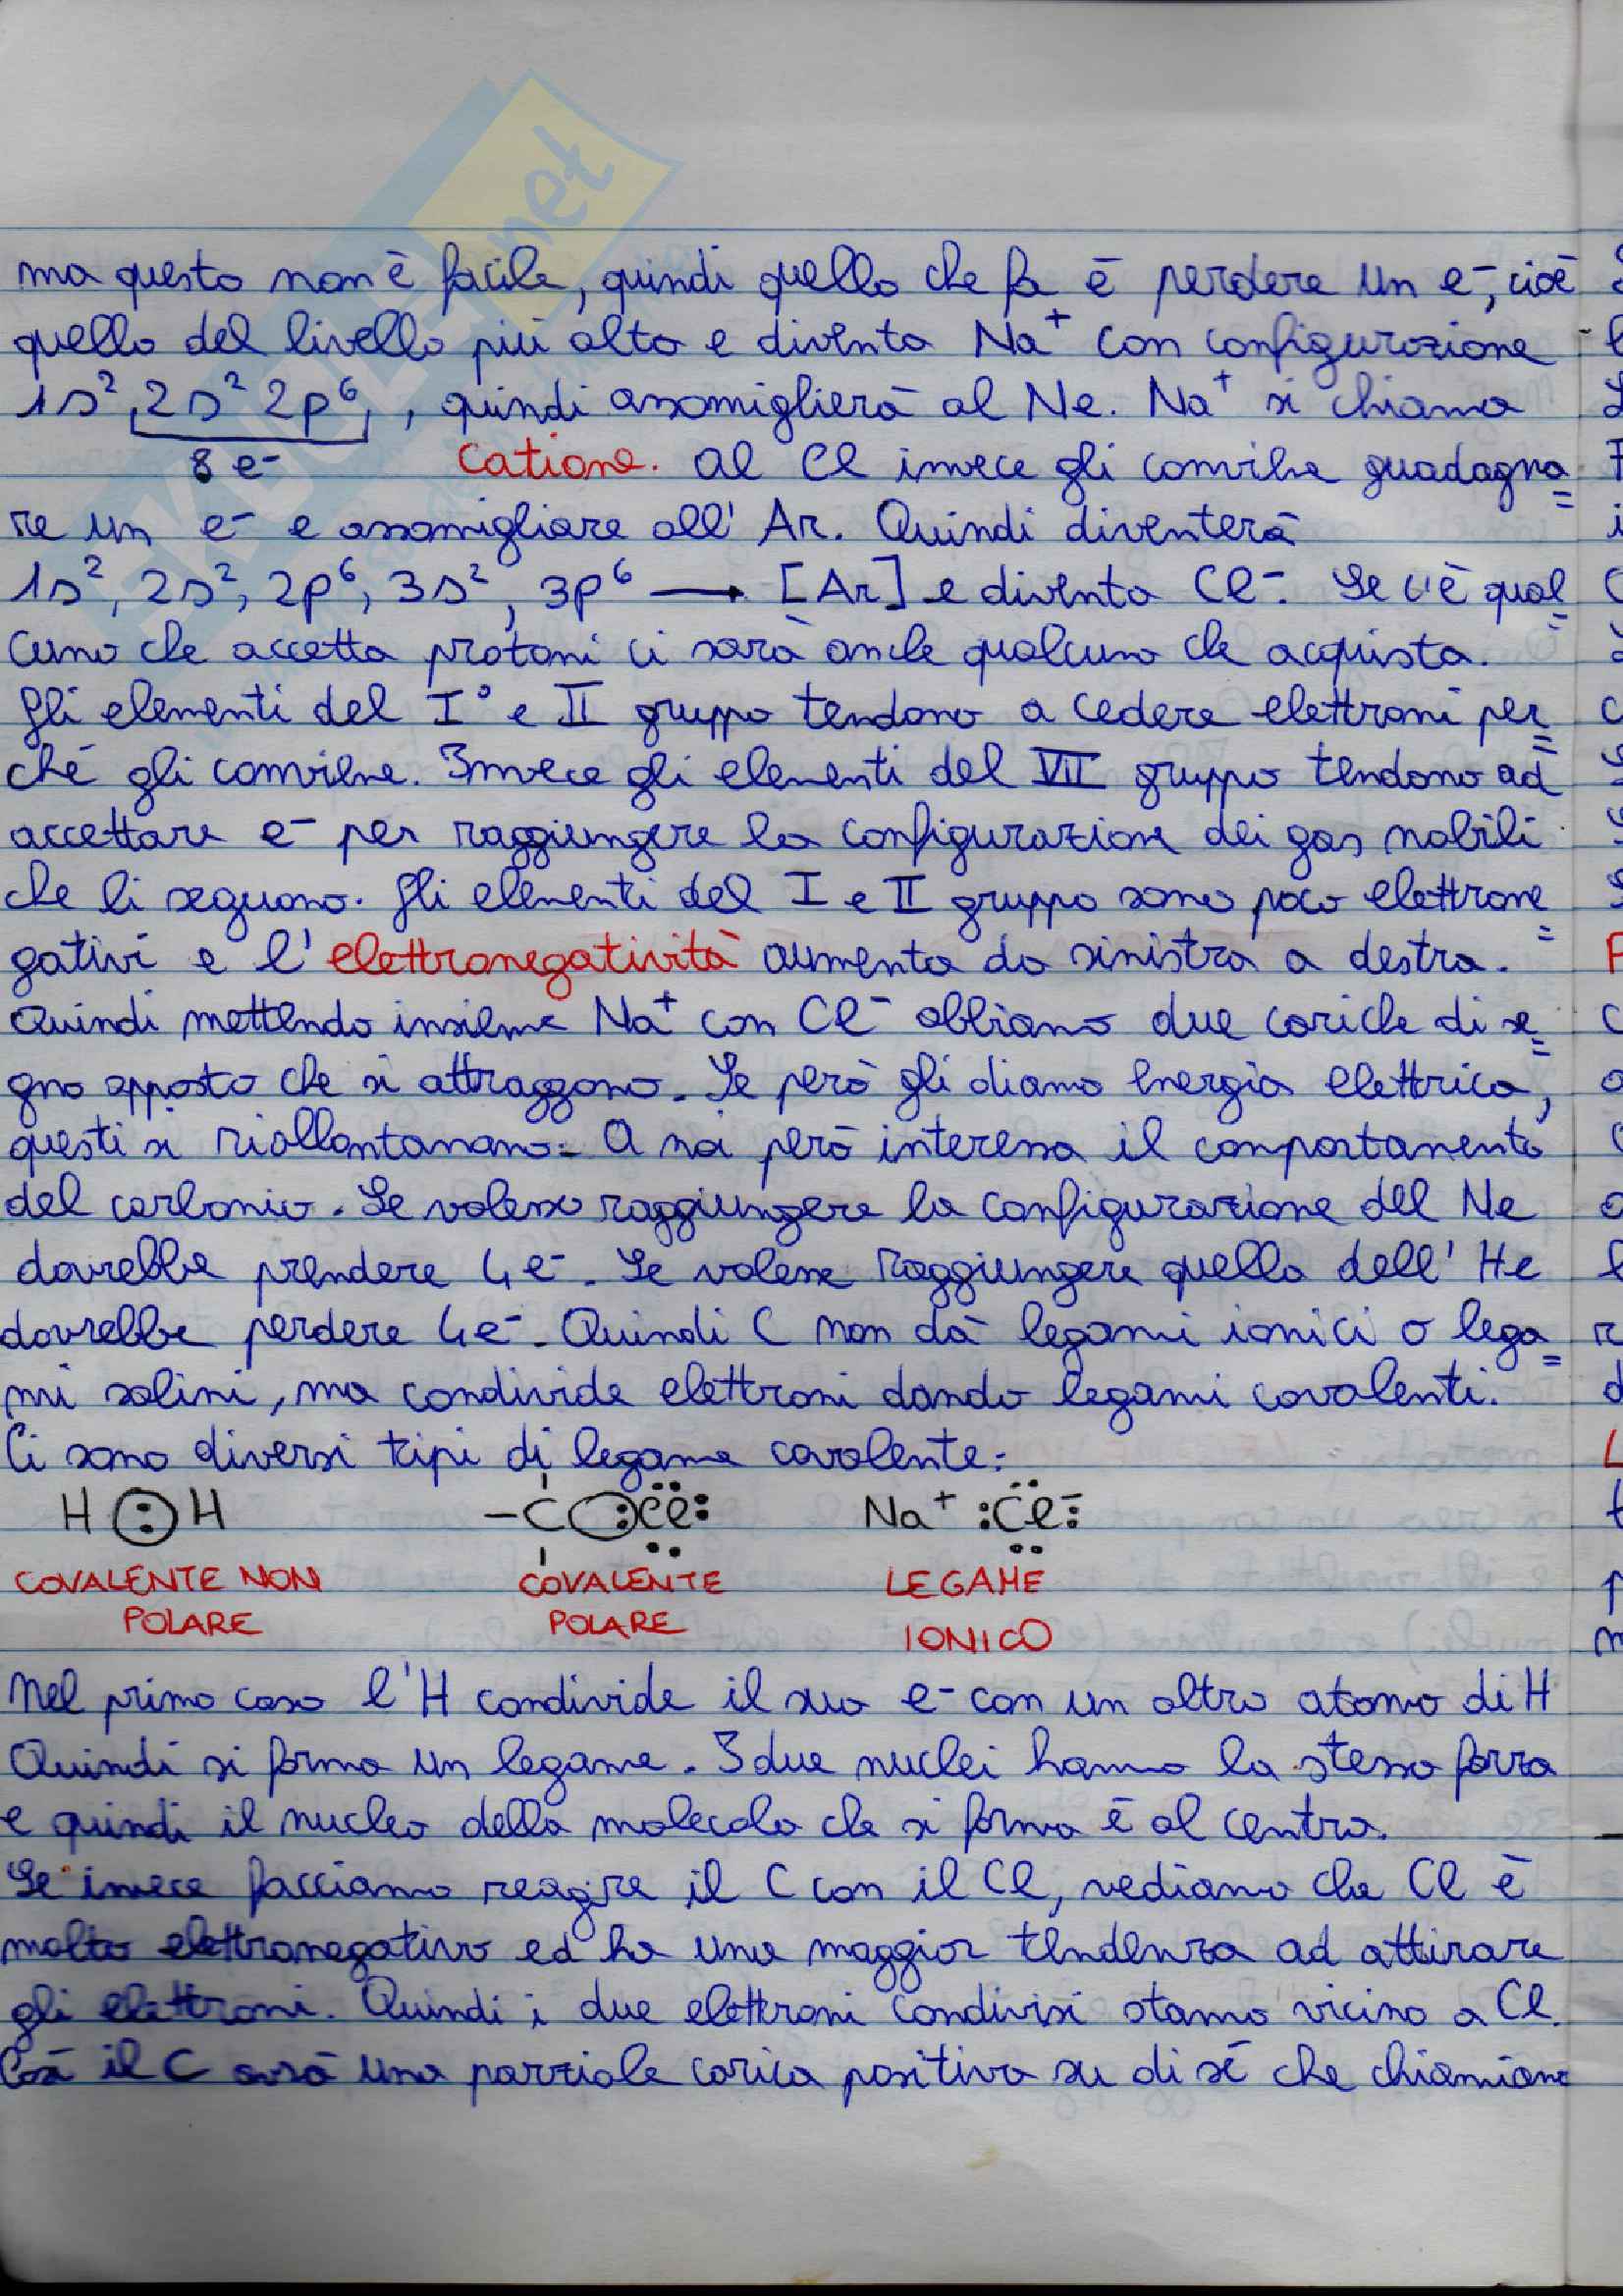 ma questo non è facile, quindi quello che fa è perdere un e⁻, cioè
quello del livello più alto e diventa Na⁺ con configurazione
1s², 2s² 2p⁶, quindi assomiglierà al Ne. Na⁺ si chiama
8 e⁻ catione. Al Cl invece gli conviene guadagna=
re un e⁻ e assomigliare all' Ar. Quindi diventerà
1s², 2s², 2p⁶, 3s², 3p⁶ → [Ar] e diventa Cl⁻. Se c'è qual=
cuno che accetta protoni ci sarà anche qualcuno che acquista.
Gli elementi del I° e II gruppo tendono a cedere elettroni per=
ché gli conviene. Invece gli elementi del VII gruppo tendono ad
accettare e⁻ per raggiungere la configurazione dei gas nobili
che li seguono. Gli elementi del I e II gruppo sono poco elettrone=
gativi e l'elettronegatività aumenta da sinistra a destra.
Quindi mettendo insieme Na⁺ con Cl⁻ abbiamo due cariche di se=
gno opposto che si attraggono. Se però gli diamo energia elettrica,
questi si riallontanano. A noi però interessa il comportamento
del carbonio. Se volesse raggiungere la configurazione del Ne
dovrebbe prendere 4e⁻. Se volesse raggiungere quella dell' He
dovrebbe perdere 4e⁻. Quindi C non dà legami ionici o lega=
mi salini, ma condivide elettroni dando legami covalenti.
Ci sono diversi tipi di legame covalente:
H : H –C :Cl: Na⁺ :Cl:⁻
COVALENTE NON COVALENTE LEGAME
POLARE POLARE IONICO
Nel primo caso l'H condivide il suo e⁻ con un altro atomo di H
Quindi si forma un legame. I due nuclei hanno la stessa forza
e quindi il nucleo della molecola che si forma è al centro.
Se invece facciamo reagire il C con il Cl, vediamo che Cl è
molto elettronegativo ed ha una maggior tendenza ad attirare
gli elettroni. Quindi i due elettroni condivisi stanno vicino a Cl.
Così il C avrà una parziale carica positiva su di sé che chiamiamo